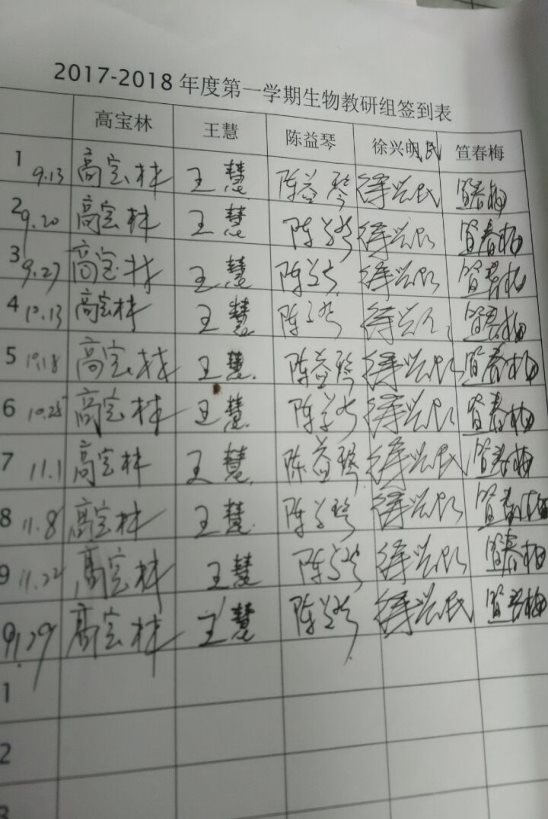 2017-2018年度第一学期生物教研组签到表
高宝林 王慧 陈益琴 徐兴民 笪春梅
1 9.13 高宝林 王慧 陈益琴 徐兴民 笪春梅
2 9.20 高宝林 王慧 陈益琴 徐兴民 笪春梅
3 9.27 高宝林 王慧 陈益琴 徐兴民 笪春梅
4 10.13 高宝林 王慧 陈益琴 徐兴民 笪春梅
5 10.18 高宝林 王慧 陈益琴 徐兴民 笪春梅
6 10.25 高宝林 王慧 陈益琴 徐兴民 笪春梅
7 11.1 高宝林 王慧 陈益琴 徐兴民 笪春梅
8 11.8 高宝林 王慧 陈益琴 徐兴民 笪春梅
9 11.22 高宝林 王慧 陈益琴 徐兴民 笪春梅
11.29 高宝林 王慧 陈益琴 徐兴民 笪春梅
1
2
3